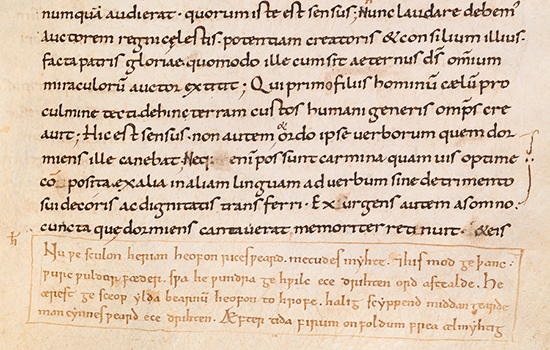 numquā audierat · quorum iste est sensus; Nunc laudare debem᾽
auctorem regni cęlestis · potentiam creatoris & consilium illius ·
facta patris glorię · quomodo ille cum sit aeternus ds̄ omnium
miraculorū auctor extitit; Qui primo filiis hominū cælum pro
culmine tecti · dehinc terram custos humani generis omp̄s cre
avit; Hic est sensus · non autem ordo ipse verborum quem dor
miens ille canebat; Neq; enim possunt carmina quamvis optime
cō posita · ex alia in aliam linguam ad verbum sine detrimento
sui decoris ac dignitatis transferri · Exurgens autem a somno ·
cuncta que dormiens cantaverat memoriter retinuit · & eis
Nu ƿe sculon herian heofon rices ƿeard · metudes myhte · ⁊ his mod ge þanc ·
ƿurc ƿuldor fæder · sƿa he ƿundra ge hƿilc ece drihten ord astealde · He
ærest ge sceop ylda bearnū heofon to hrofe · halig scyppend middan gearde
man cynnes ƿeard ece drihten · Æfter tida firum on foldum frea ælmyhtig